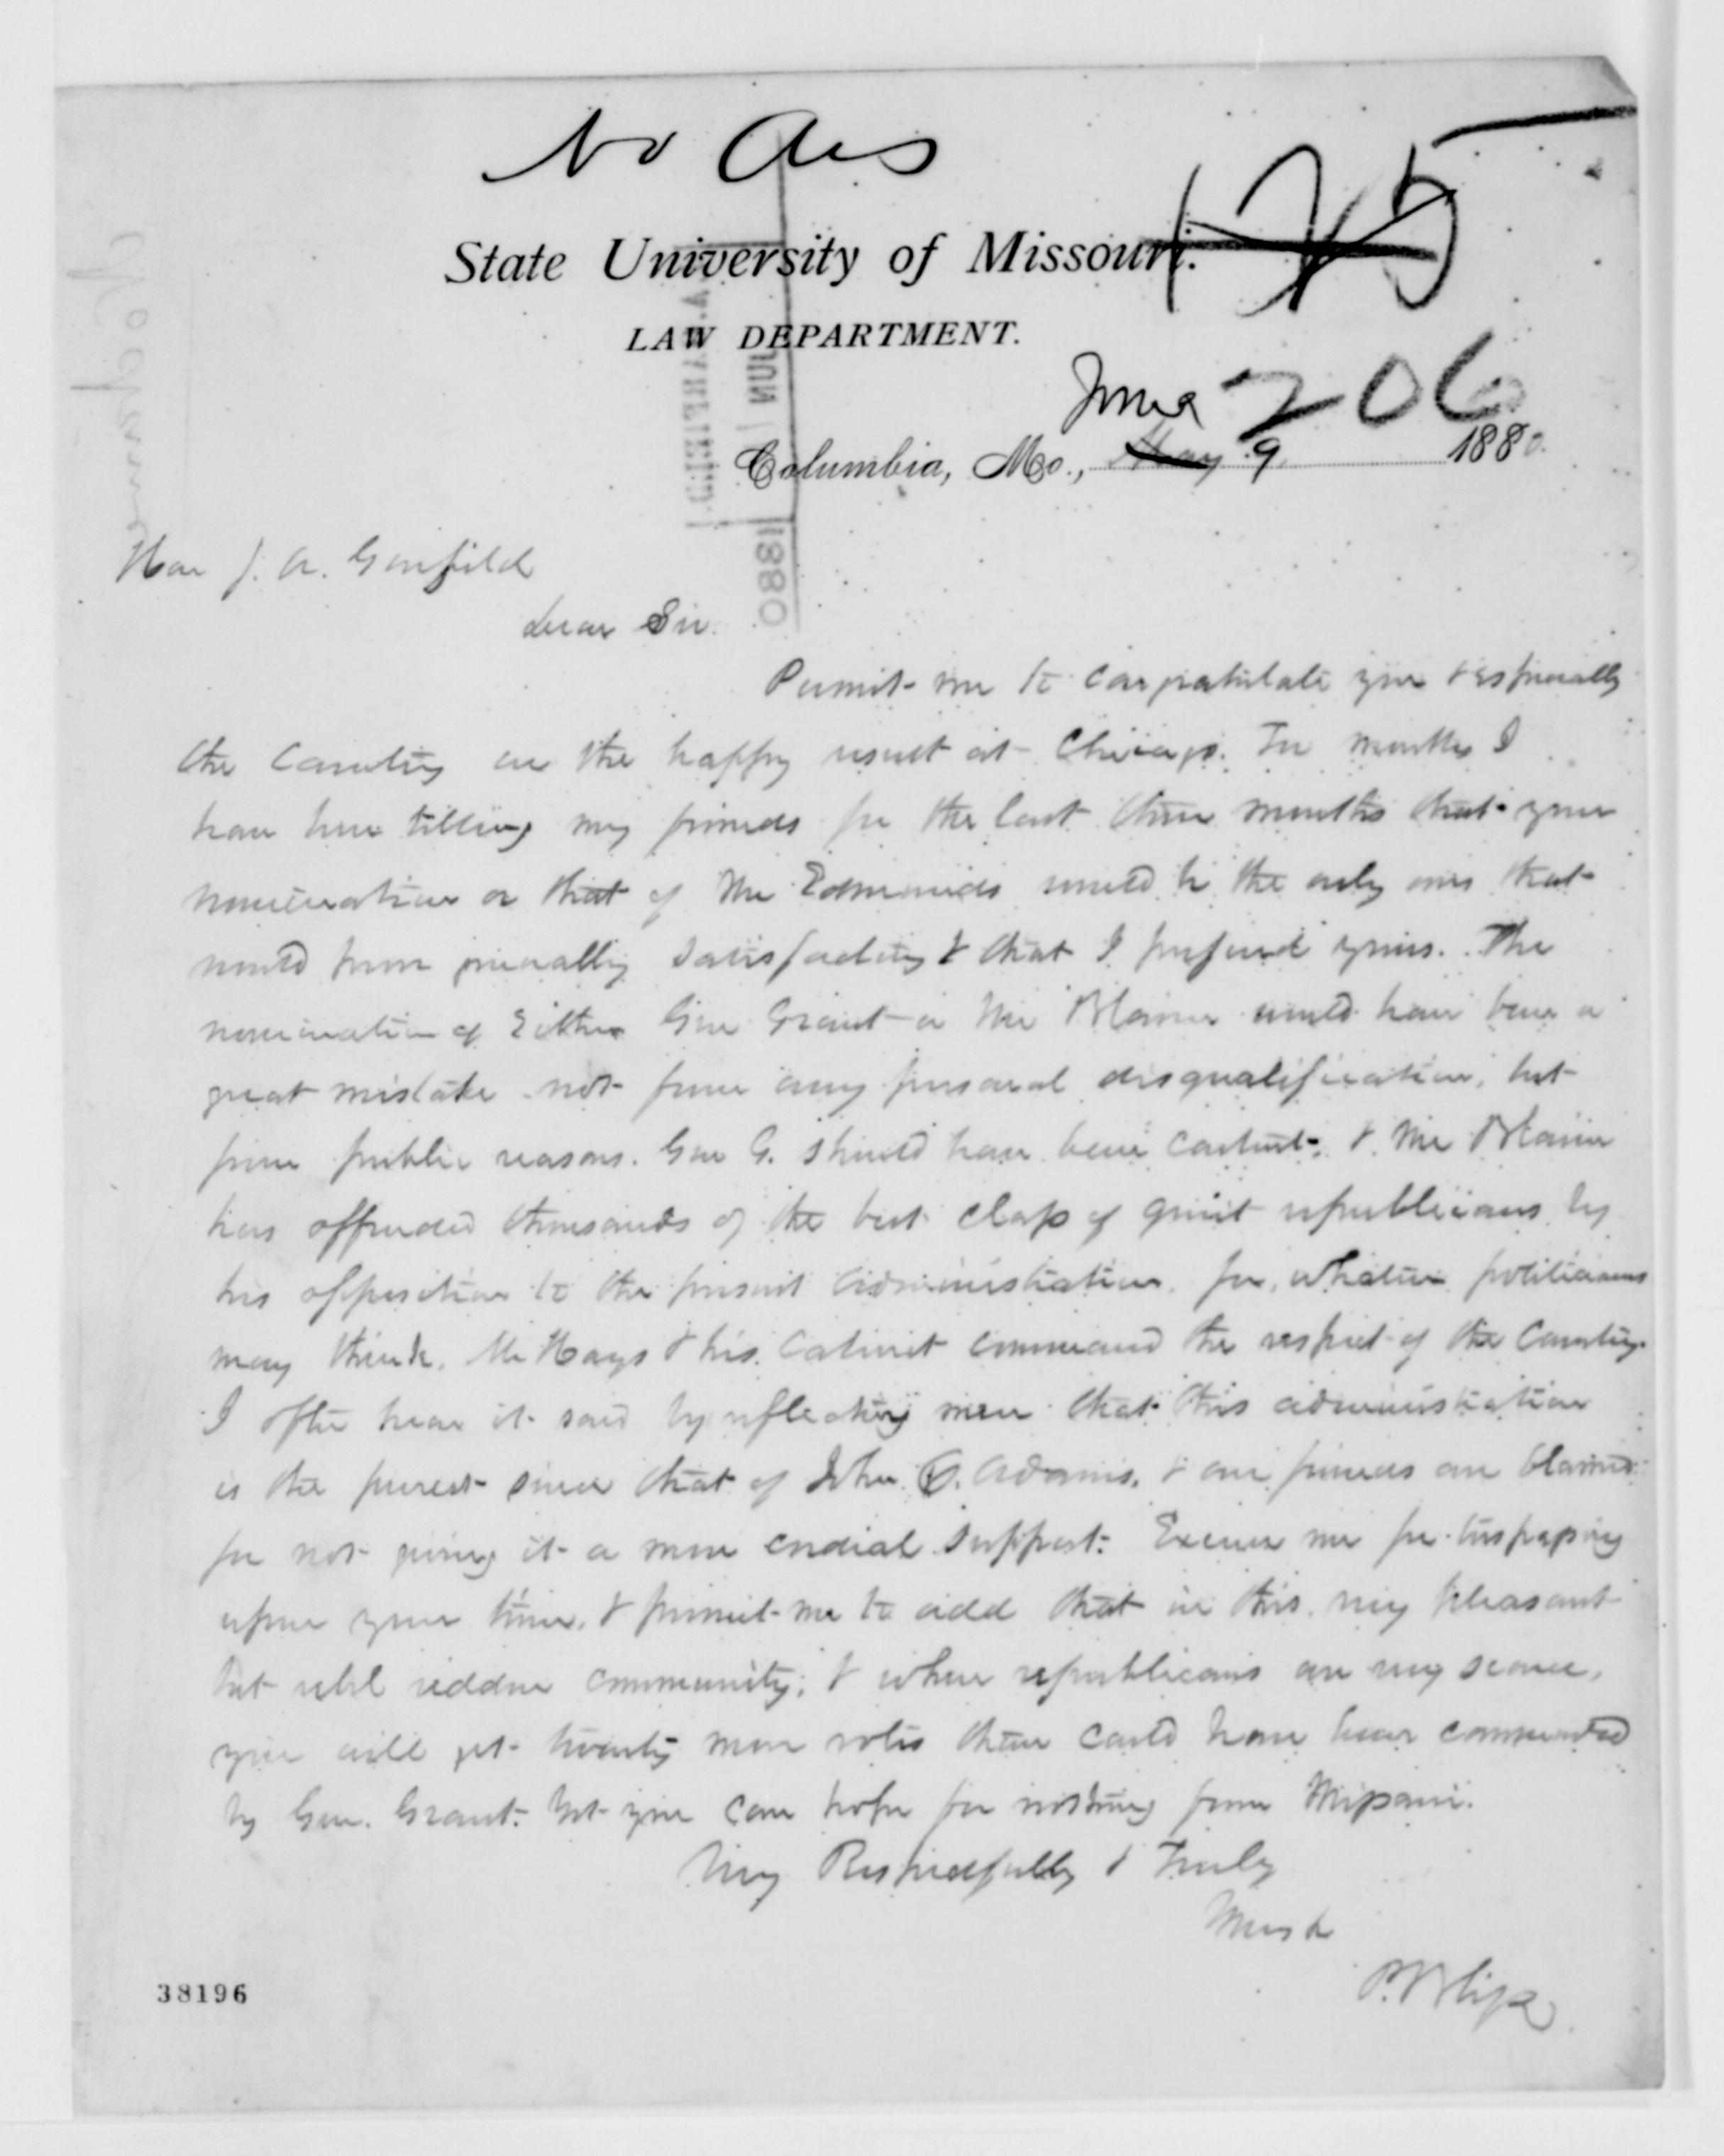 No Ans
State University of Missouri.
LAW DEPARTMENT.
June 206
Columbia, Mo., May 9 1880.
Hon J. A. Garfield
Dear Sir.
Permit me to congratulate you & especially
the Country on the happy result at Chicago. For months I
have been telling my friends for the last three months that your
nomination or that of Mr Edmunds would be the only ones that
would prove generally satisfactory & that I prefered yours. The
nomination of Either Gen Grant or Mr Blaine would have been a
great mistake not from any personal disqualification, but
from public reasons. Gen G. should have been content, & Mr Blaine
has offended thousands of the best class of quiet republicans by
his opposition to the present administration, for, whatever politicians
may think, Mr Hays & his Cabinet command the respect of the Country.
I often hear it said by reflecting men that this administration
is the purest since that of John Q. Adams, & our friends are blamed
for not giving it a more cordial support. Excuse me for trespassing
upon your time, & permit me to add that in this very pleasant
but rebel ridden community, & where republicans are very scarce,
you will get twenty more votes than could have been commanded
by Gen. Grant. Yet you can hope for nothing from Missouri.
Very Respectfully & Truly
Yours &c
P. Bliss
38196
1880